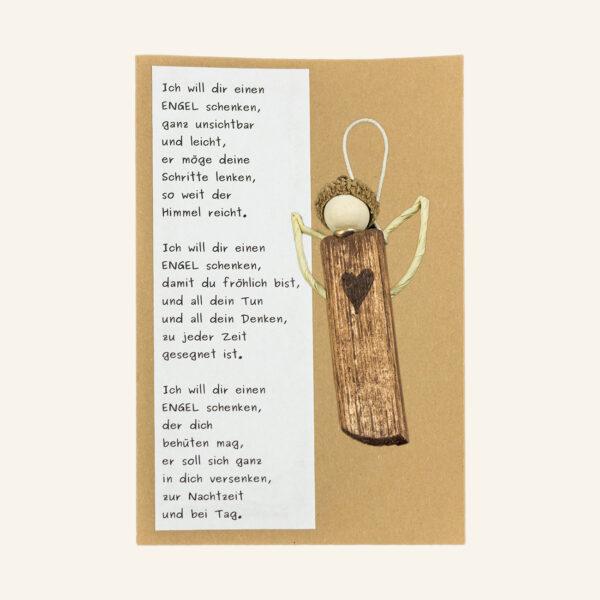 Ich will dir einen
ENGEL schenken,
ganz unsichtbar
und leicht,
er möge deine
Schritte lenken,
so weit der
Himmel reicht.
Ich will dir einen
ENGEL schenken,
damit du fröhlich bist,
und all dein Tun
und all dein Denken,
zu jeder Zeit
gesegnet ist.
Ich will dir einen
ENGEL schenken,
der dich
behüten mag,
er soll sich ganz
in dich versenken,
zur Nachtzeit
und bei Tag.